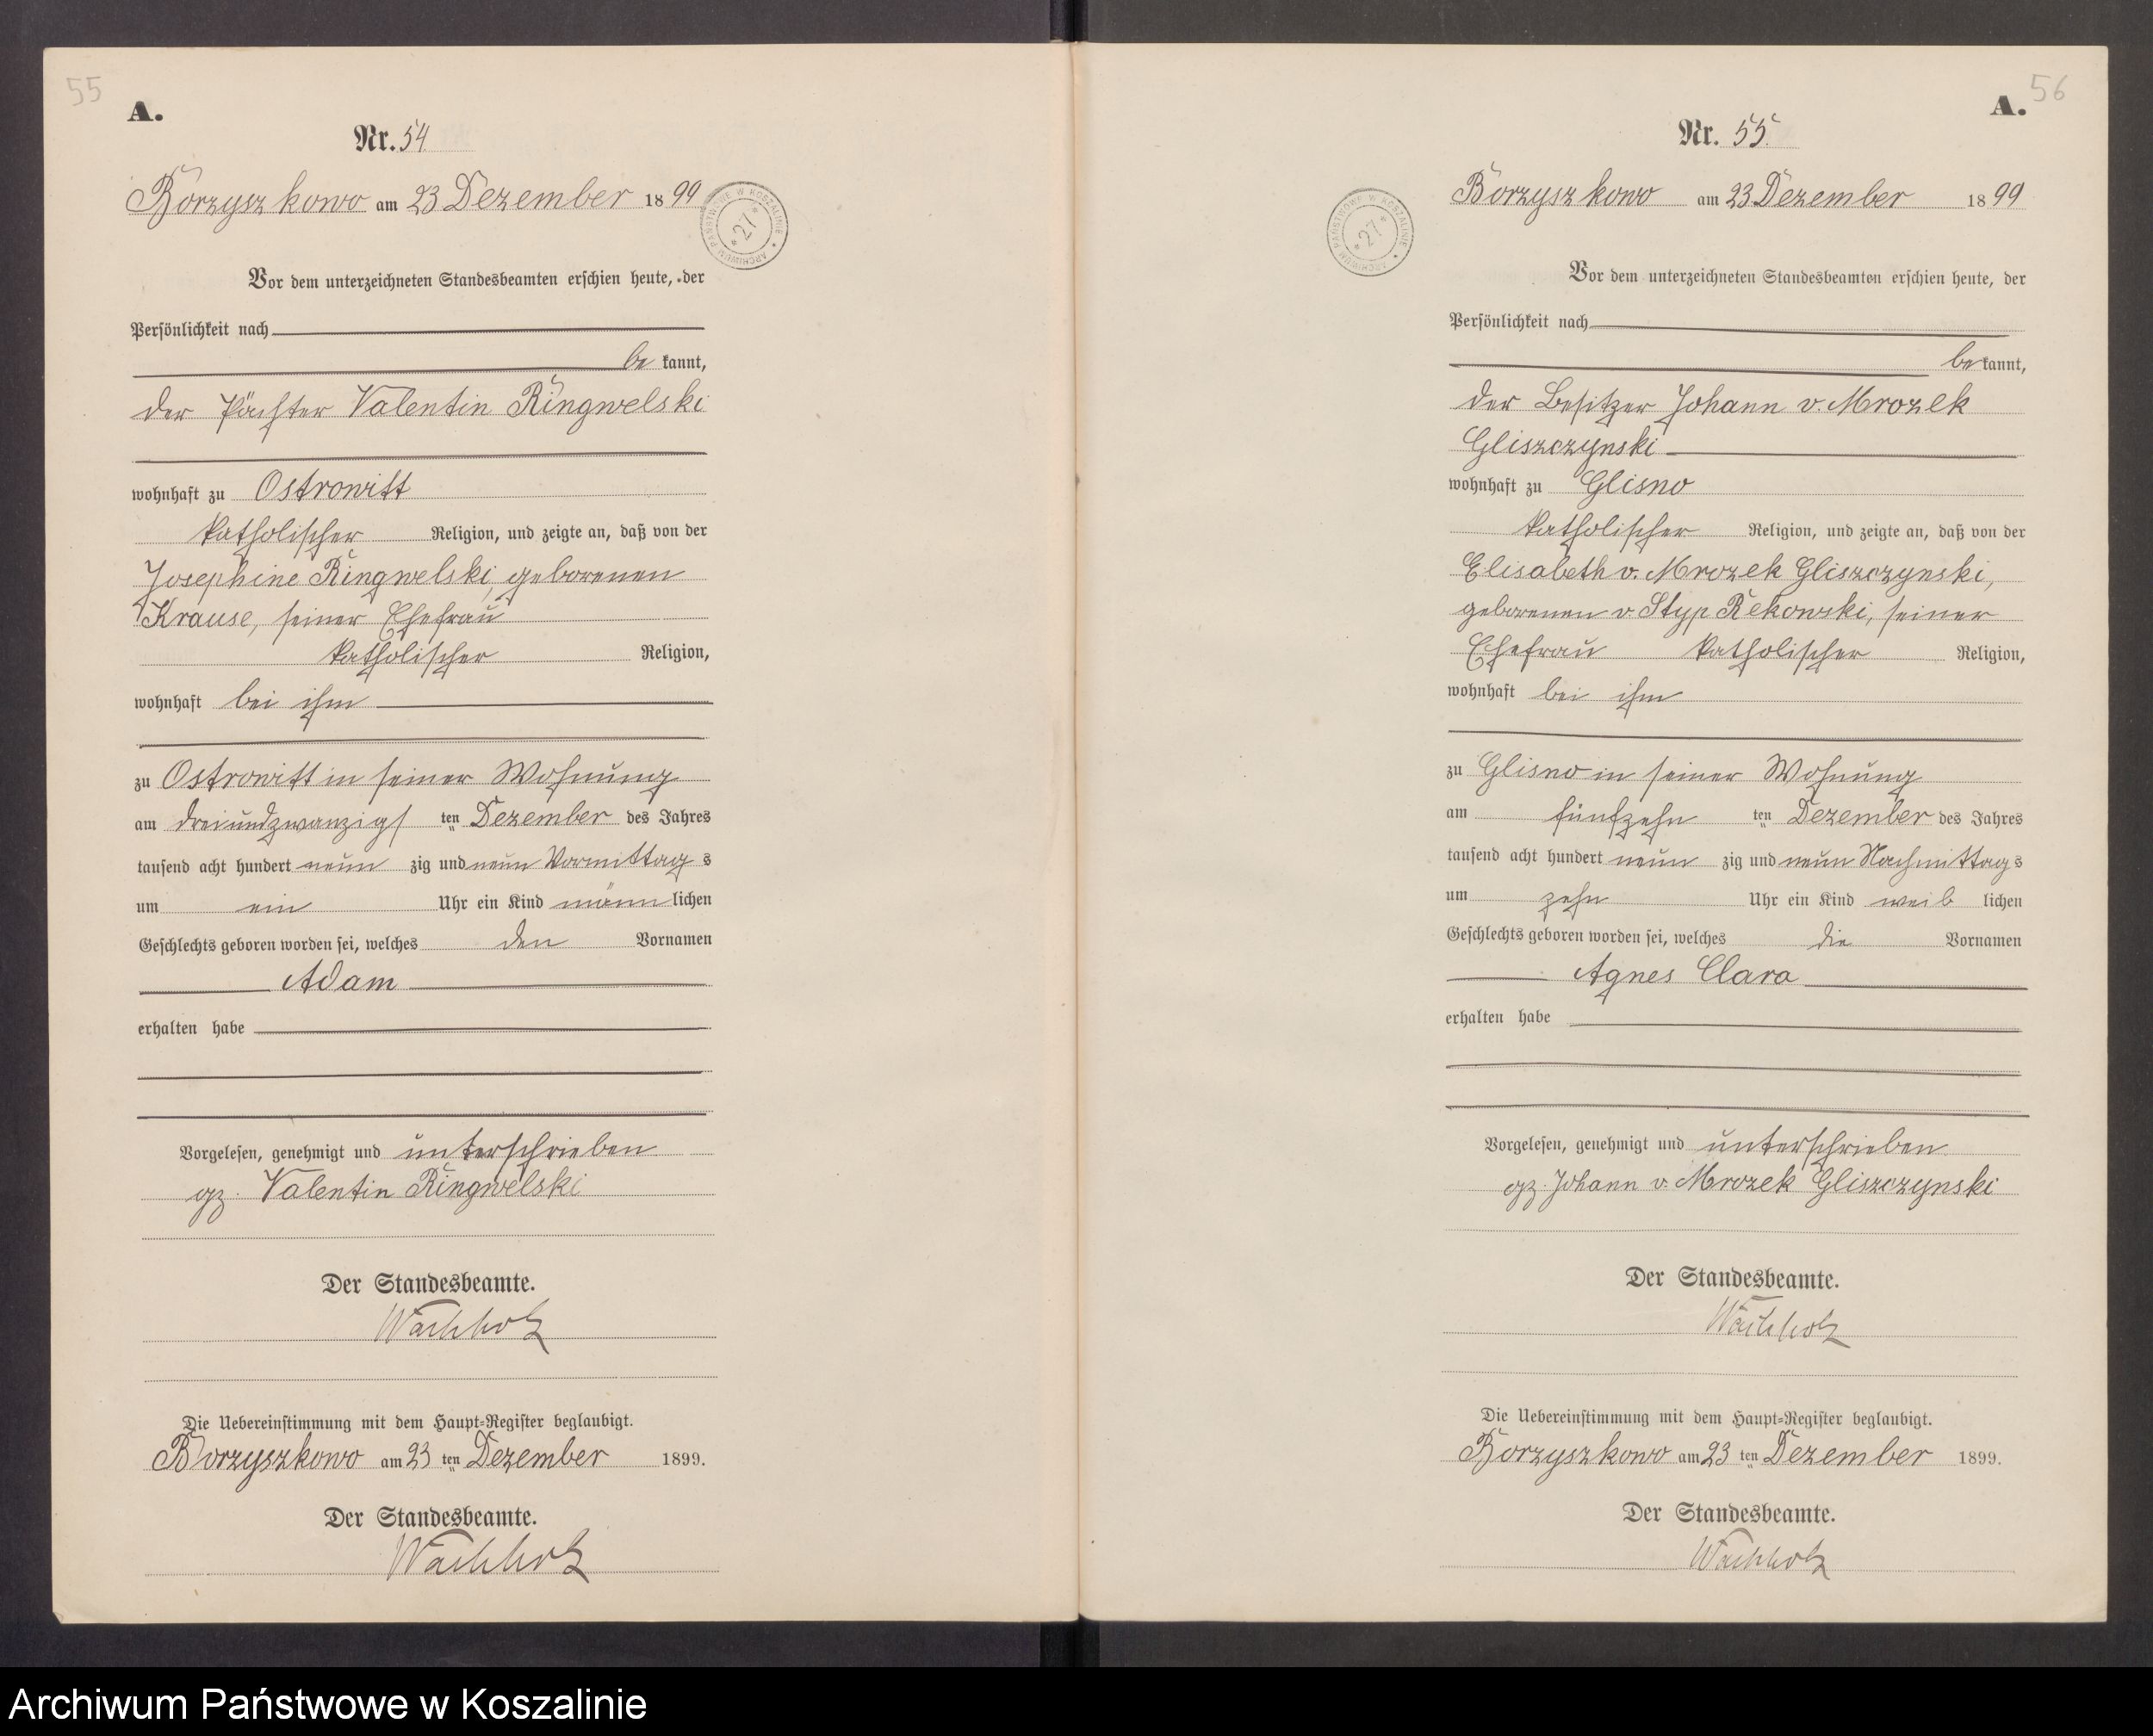 55
A.
Nr. 54
Borzyszkowo am 23 Dezember 1899
ARCHIWUM PAŃSTWOWE W KOSZALINIE * 27 *
Vor dem unterzeichneten Standesbeamten erschien heute, der
Persönlichkeit nach
be kannt,
der Pächter Valentin Ringwelski
wohnhaft zu Ostrowitt
katholischer Religion, und zeigte an, daß von der
Josephine Ringwelski, geborenen
Krause, seiner Ehefrau
katholischer Religion,
wohnhaft bei ihm
zu Ostrowitt in seiner Wohnung
am dreiundzwanzigs ten Dezember des Jahres
tausend acht hundert neun zig und neun Vormittag s
um ein Uhr ein Kind männ lichen
Geschlechts geboren worden sei, welches den Vornamen
Adam
erhalten habe
Vorgelesen, genehmigt und unterschrieben
gz. Valentin Ringwelski
Der Standesbeamte.
Wachholz
Die Uebereinstimmung mit dem Haupt-Register beglaubigt.
Borzyszkowo am 23 ten Dezember 1899.
Der Standesbeamte.
Wachholz
56
A.
Nr. 55.
Borzyszkowo am 23 Dezember 1899
ARCHIWUM PAŃSTWOWE W KOSZALINIE * 27 *
Vor dem unterzeichneten Standesbeamten erschien heute, der
Persönlichkeit nach
be kannt,
der Besitzer Johann v. Mrozek
Gliszczynski
wohnhaft zu Glisno
katholischer Religion, und zeigte an, daß von der
Elisabeth v. Mrozek Gliszczynski,
geborenen v. Styp Rekowski, seiner
Ehefrau katholischer Religion,
wohnhaft bei ihm
zu Glisno in seiner Wohnung
am fünfzehn ten Dezember des Jahres
tausend acht hundert neun zig und neun Nachmittag s
um zehn Uhr ein Kind weib lichen
Geschlechts geboren worden sei, welches die Vornamen
Agnes Clara
erhalten habe
Vorgelesen, genehmigt und unterschrieben
gz. Johann v. Mrozek Gliszczynski
Der Standesbeamte.
Wachholz
Die Uebereinstimmung mit dem Haupt-Register beglaubigt.
Borzyszkowo am 23 ten Dezember 1899.
Der Standesbeamte.
Wachholz
Archiwum Państwowe w Koszalinie